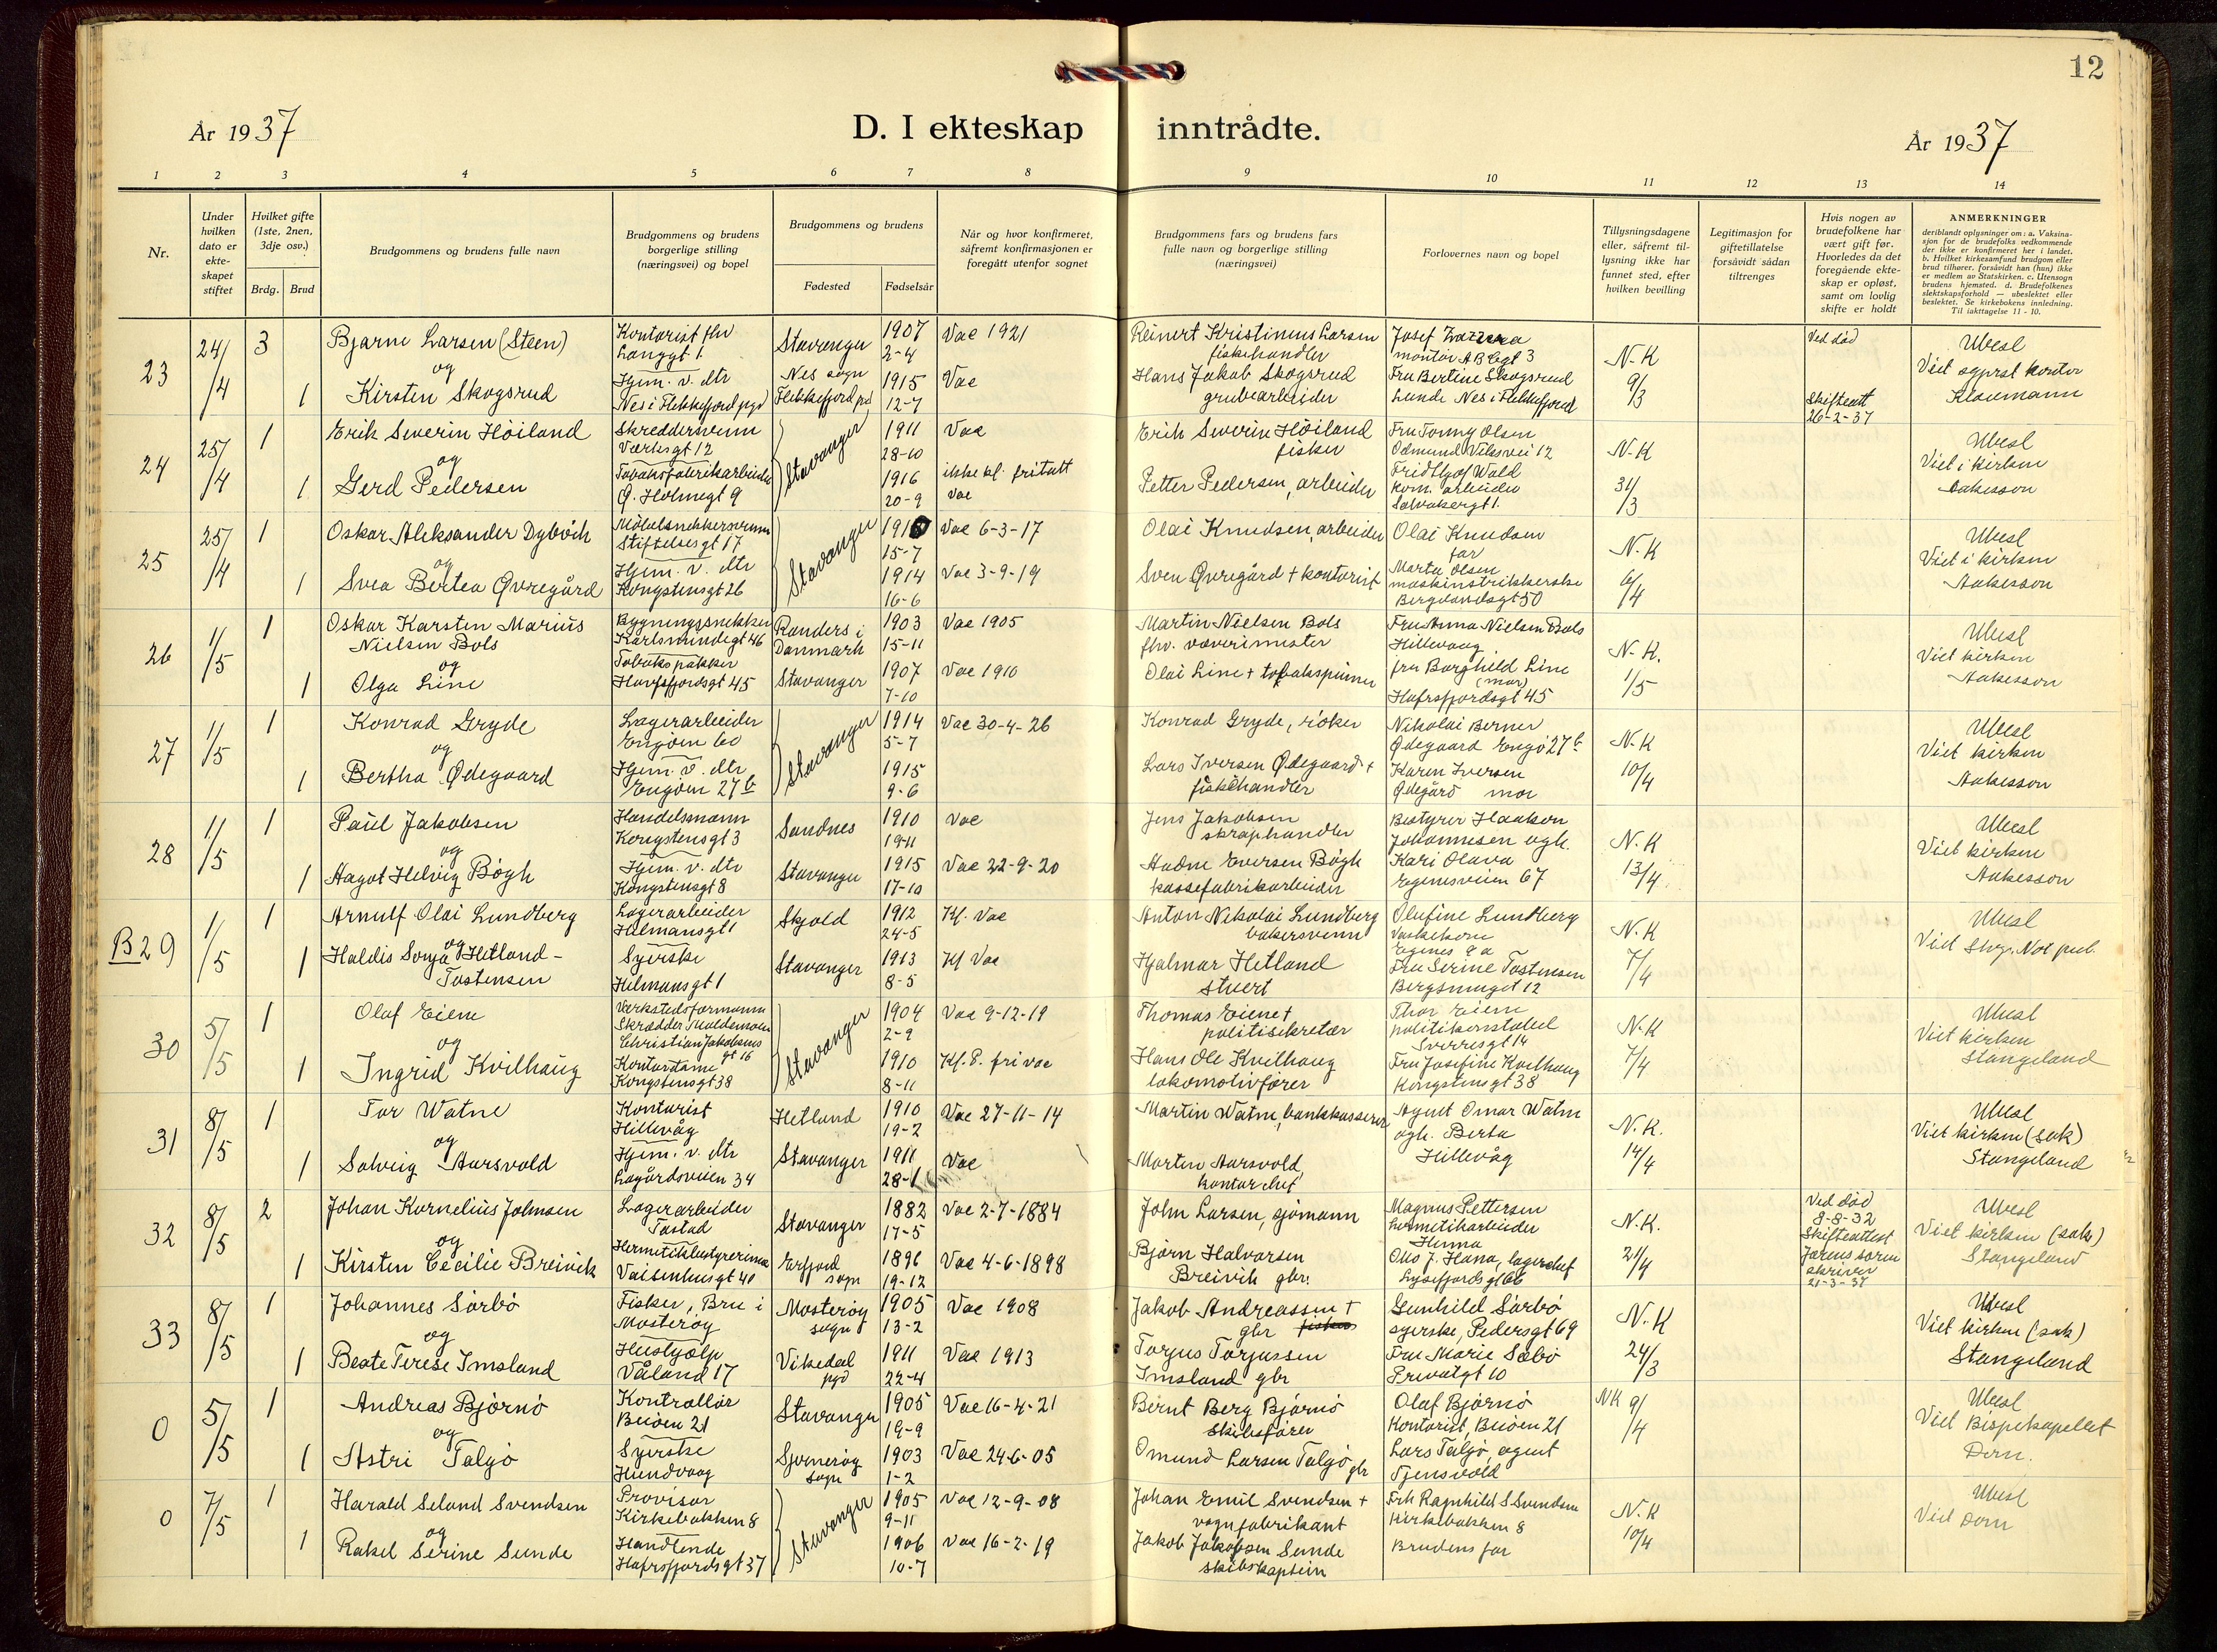 12
År 1937
D. I ekteskap inntrådte.
År 1937
1 2 3 4 5 6 7 8 9 10 11 12 13 14
Nr.
Under hvilken dato er ekte-skapet stiftet
Hvilket gifte (1ste, 2nen, 3dje osv.)
Brdg. Brud
Brudgommens og brudens fulle navn
Brudgommens og brudens borgerlige stilling (næringsvei) og bopel
Brudgommens og brudens
Fødested Fødselsår
Når og hvor konfirmeret, såfremt konfirmasjonen er foregått utenfor sognet
Brudgommens fars og brudens fars fulle navn og borgerlige stilling (næringsvei)
Forlovernes navn og bopel
Tillysningsdagene eller, såfremt til-lysning ikke har funnet sted, efter hvilken bevilling
Legitimasjon for giftetillatelse forsåvidt sådan tiltrenges
Hvis nogen av brudefolkene har vært gift før. Hvorledes da det foregående ekte-skap er opløst, samt om lovlig skifte er holdt
ANMERKNINGER
deriblandt oplysninger om: a. Vaksina-sjon for de brudefolks vedkommende der ikke er konfirmeret her i landet. b. Hvilket kirkesamfund brudgom eller brud tilhører, forsåvidt han (hun) ikke er medlem av Statskirken. c. Utensogn brudens hjemsted. d. Brudefolkenes slektskapsforhold — ubeslektet eller beslektet. Se kirkebokens innledning. Til iakttagelse 11 - 10.
23 24/4 3 Bjarne Larsen (Steen) Kontorist fhv Langgt 1. Stavanger 1907 2-4 Vac 1921 Reinert Kristinius Larsen fiskehandler Josef montør N-K 9/3 Ved død Ubesl
og
1 Kirsten Skogsrud Hjem. v. dtr Nes i Flekkefjord pgd Nes sogn Flekkefjord 1915 12-7 Vac Hans Jakob Skogsrud grubearbeider Fru Bertine Skogsrud Lunde Nes i Flekkefjord Skifteatt 26-2-37 Viet kontor
24 25/4 1 Erik Severin Höiland Skreddersvenn Verksgt 12 Stavanger 1911 28-10 Vac Erik Severin Höiland fisker Fru Tonny Olsen N-K 31/3 Ubesl
og
1 Gerd Pedersen Tobaksfabrikarbeider Ø. Holmegt 9 1916 20-9 ikke kf. fritatt Vac Petter Pedersen, arbeider Fridthjof Wold kom. arbeider Viet i kirken Aakesson
25 25/4 1 Oskar Aleksander Dybvik Möbelsnekkersvenn Stiftelsesgt 17 Stavanger 15-7 Vac 6-3-17 Olai Knudsen, arbeider Olai Knudsen far N-K 6/4 Ubesl
og
1 Svea Bertea Qvregård Hjem. v. dtr Kongstensgt 26 1914 16-6 Vac 3-9-19 Sven Qvregård + kontorist Marta Olsen maskinstrikkerske Bergelandsgt 50 Viet i kirken Aakesson
26 1/5 1 Oskar Karsten Marius Nielsen Bols Bygningssnekker Karlsminnegt 46 Randers i Danmark 1903 15-11 Vac 1905 Martin Nielsen Bols fhv. væverimester Fru Anna Nielsen Bols Hillevaag N-K. 1/5 Ubesl
og
1 Olga Line Tobakspakker Hafrsfjordsgt 45 Stavanger 1907 7-10 Vac 1910 Olai Line + tobakspinner fru Borghild Line (mor) Hafrsfjordsgt 45 Viet kirken Aakesson
27 1/5 1 Konrad Gryde Lagerarbeider Engøen 60 Stavanger 1914 5-7 Vac 30-4-26 Konrad Gryde, röker Nikolai Berner Ødegaard Engö 27 b N-K 10/4 Ubesl
og
1 Bertha Ødegaard Hjem. v. dtr Engøen 27 b 1915 9-6 Lars Iversen Ødegaard + fiskehandler Karen Iversen Ødegård mor Viet kirken Aakesson
28 1/5 1 Paul Jakobsen Handelsmann Kongstensgt 3 Sandnes 1910 19-11 Vac Jens Jakobsen skraphandler Bestyrer Haakon Johannesen ogh. N-K 13/4 Ubesl
og
1 Aagot Helvig Bögh Hjem. v. dtr Kongstensgt 8 Stavanger 1915 17-10 Vac 22-9-20 Audne Eversen Bögh kassefabrikarbeider Kari Olava Egenesveien 67 Viet kirken Aakesson
B29 1/5 1 Arnulf Olai Lundberg Lagerarbeider Helmansgt 1 Skjold 1912 24-5 Kf. Vac Anton Nikolai Lundberg bakersvenn Olufine Lundberg Vaskekone Egenes 9 a N-K 7/4 Ubesl
og
1 Haldis Sonja Hetland-Tostensen Syerske Helmansgt 1 Stavanger 1913 8-5 Kf Vac Hjalmar Hetland stuert Fru Serine Tostensen Bergsmuget 12 Viet Not. pub.
30 5/5 1 Olaf Eiene Verkstedsformann Christian Jakobsens gt 16 Stavanger 1904 2-9 Vac 9-12-19 Thomas Eiene + politisekretær Thor Eiene politikonstabel Sverresgt 14 N-K 7/4 Ubesl
og
1 Ingrid Kvilhaug Kontordame Kongstensgt 38 1910 8-11 Kf. P. fri vac Hans Ole Kvilhaug lokomotivfører Fru Josefine Kvilhaug Kongstensgt 38 Viet kirken Stangeland
31 8/5 1 Tor Watne Kontorist Hillevåg Hetland 1910 19-2 Vac 27-11-14 Martin Watne, bankkasserer Agent Omar Watne ogh. Berta Hillevåg N.K. 14/4 Ubesl
og
1 Solveig Aarsvold Hjem. v. dtr Lagårdsveien 34 Stavanger 1911 28-1 Vac Morten Aarsvold, kontorchef Viet kirken (sak) Stangeland
32 8/5 2 Johan Kornelius Johnsen Lagerarbeider Tastad Stavanger 1882 17-5 Vac 2-7-1884 John Larsen, sjømann Magnus Pettersen hermetikarbeider Hinna N.K. 21/4 Ved død 8-8-32 Skifteattest Jærens sorenskriver 21-3-37 Ubesl
og
1 Kirsten Cecilie Breivik Hermetikbestyrerinne Vaisenhusgt 41 Erfjord sogn 1896 19-12 Vac 4-6-1898 Björn Halvorsen Breivik gbr. Otto J. Hana, lagerchef Lysefjordsgt 66 Viet kirken (sak) Stangeland
33 8/5 1 Johannes Sörbö Fisker, Bru i Mosteröy Mosteröy sogn 1905 13-2 Vac 1908 Jakob Andreassen + gbr fisker Gunhild Sörbö syerske, Pedersgt 69 N-K 24/3 Ubesl
og
1 Beate Terese Imsland Hushjælp Våland 17 Vikedal pgd 1911 22-4 Vac 1913 Torjus Torjussen Imsland gbr Fru Marie Sæbö Privatgt 10 Viet kirken (sak) Stangeland
0 5/5 1 Andreas Björnö Kontrollör Buöen 21 Stavanger 1905 19-9 Vac 16-4-21 Bernt Berg Björnö Skibsfører Olaf Björnö Kontorist, Buöen 21 NK 9/4 Ubesl
og
1 Astri Talgö Syerske Hundvaag Sjerneröy sogn 1903 1-2 Vac 24-6-05 Omund Larsen Talgö gbr Lars Talgö, agent Tjensvold Viet Bispekapellet Dom.
0 7/5 1 Harald Seland Svendsen Provisor Kirkebakken 8 Stavanger 1905 9-11 Vac 12-9-08 Johan Emil Svendsen + vognfabrikant Frk Ragnhild S Svendsen Kirkebakken 8 N.K 10/4 Ubesl
og
1 Rakel Serine Sunde Handlende Hafrsfjordsgt 37 1906 10-7 Vac 16-2-19 Jakob Jakobsen Sunde skibskaptein Brudens far Viet Dom